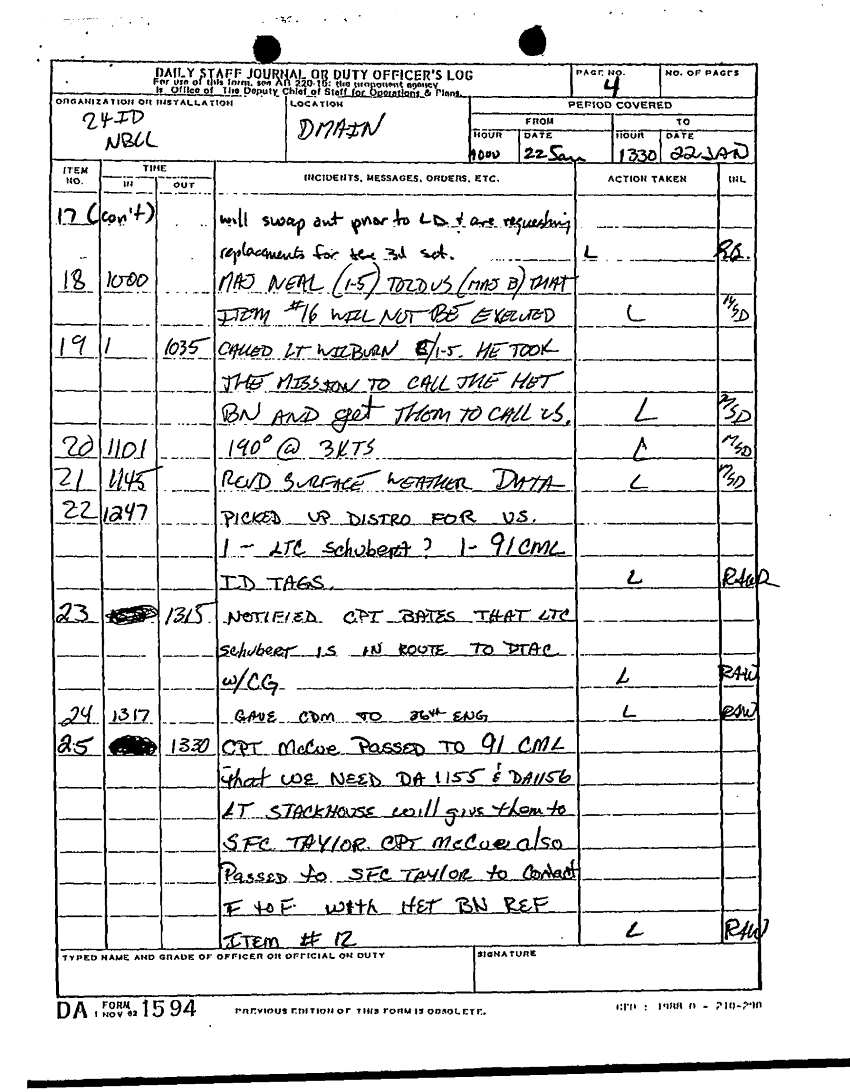 DAILY STAFF JOURNAL OR DUTY OFFICER'S LOG
For use of this form, see AR 220-15; the proponent agency
is Office of The Deputy Chief of Staff for Operations & Plans.
PAGE NO.
4
NO. OF PAGES
ORGANIZATION OR INSTALLATION
24 ID
NBCC
LOCATION
DMAIN
PERIOD COVERED
FROM
TO
HOUR
DATE
HOUR
DATE
1000 22 Jan 1330 22 JAN
ITEM NO.
TIME
IN OUT
INCIDENTS, MESSAGES, ORDERS, ETC.
ACTION TAKEN
INL
17 (con't) will swap out prior to LD & are requesting
replacements for the 3d set. L
18 1000 MAJ NEAL (1-5) TOLD US (MAJ B) THAT
ITEM #16 WILL NOT BE EXECUTED L
19 1 1035 CALLED LT WILBURN /1-5. HE TOOK
THE MISSION TO CALL THE HET
BN AND get THEM TO CALL US. L
20 1101 190° @ 3KTS
21 1145 RCVD SURFACE WEATHER DATA L
22 1247 PICKED UP DISTRO FOR US.
1 - LTC Schubert? 1- 91 CML
ID TAGS. L
23 1315 NOTIFIED CPT BATES THAT LTC
Schubert IS IN ROUTE TO DTAC
w/CG L RAW
24 1317 GAVE CDM TO 36th ENG L RAW
25 1330 CPT McCue Passed TO 91 CML
that WE NEED DA 1155 & DA1156
LT STACKHOUSE will give them to
SFC TAYLOR. CPT McCue also
Passed to SFC TAYLOR to Contact
F to F with HET BN REF
ITEM # 12 L RAW
TYPED NAME AND GRADE OF OFFICER OR OFFICIAL ON DUTY
SIGNATURE
DA FORM 1594
1 NOV 62
PREVIOUS EDITION OF THIS FORM IS OBSOLETE.
GPO : 1988 O - 210-290